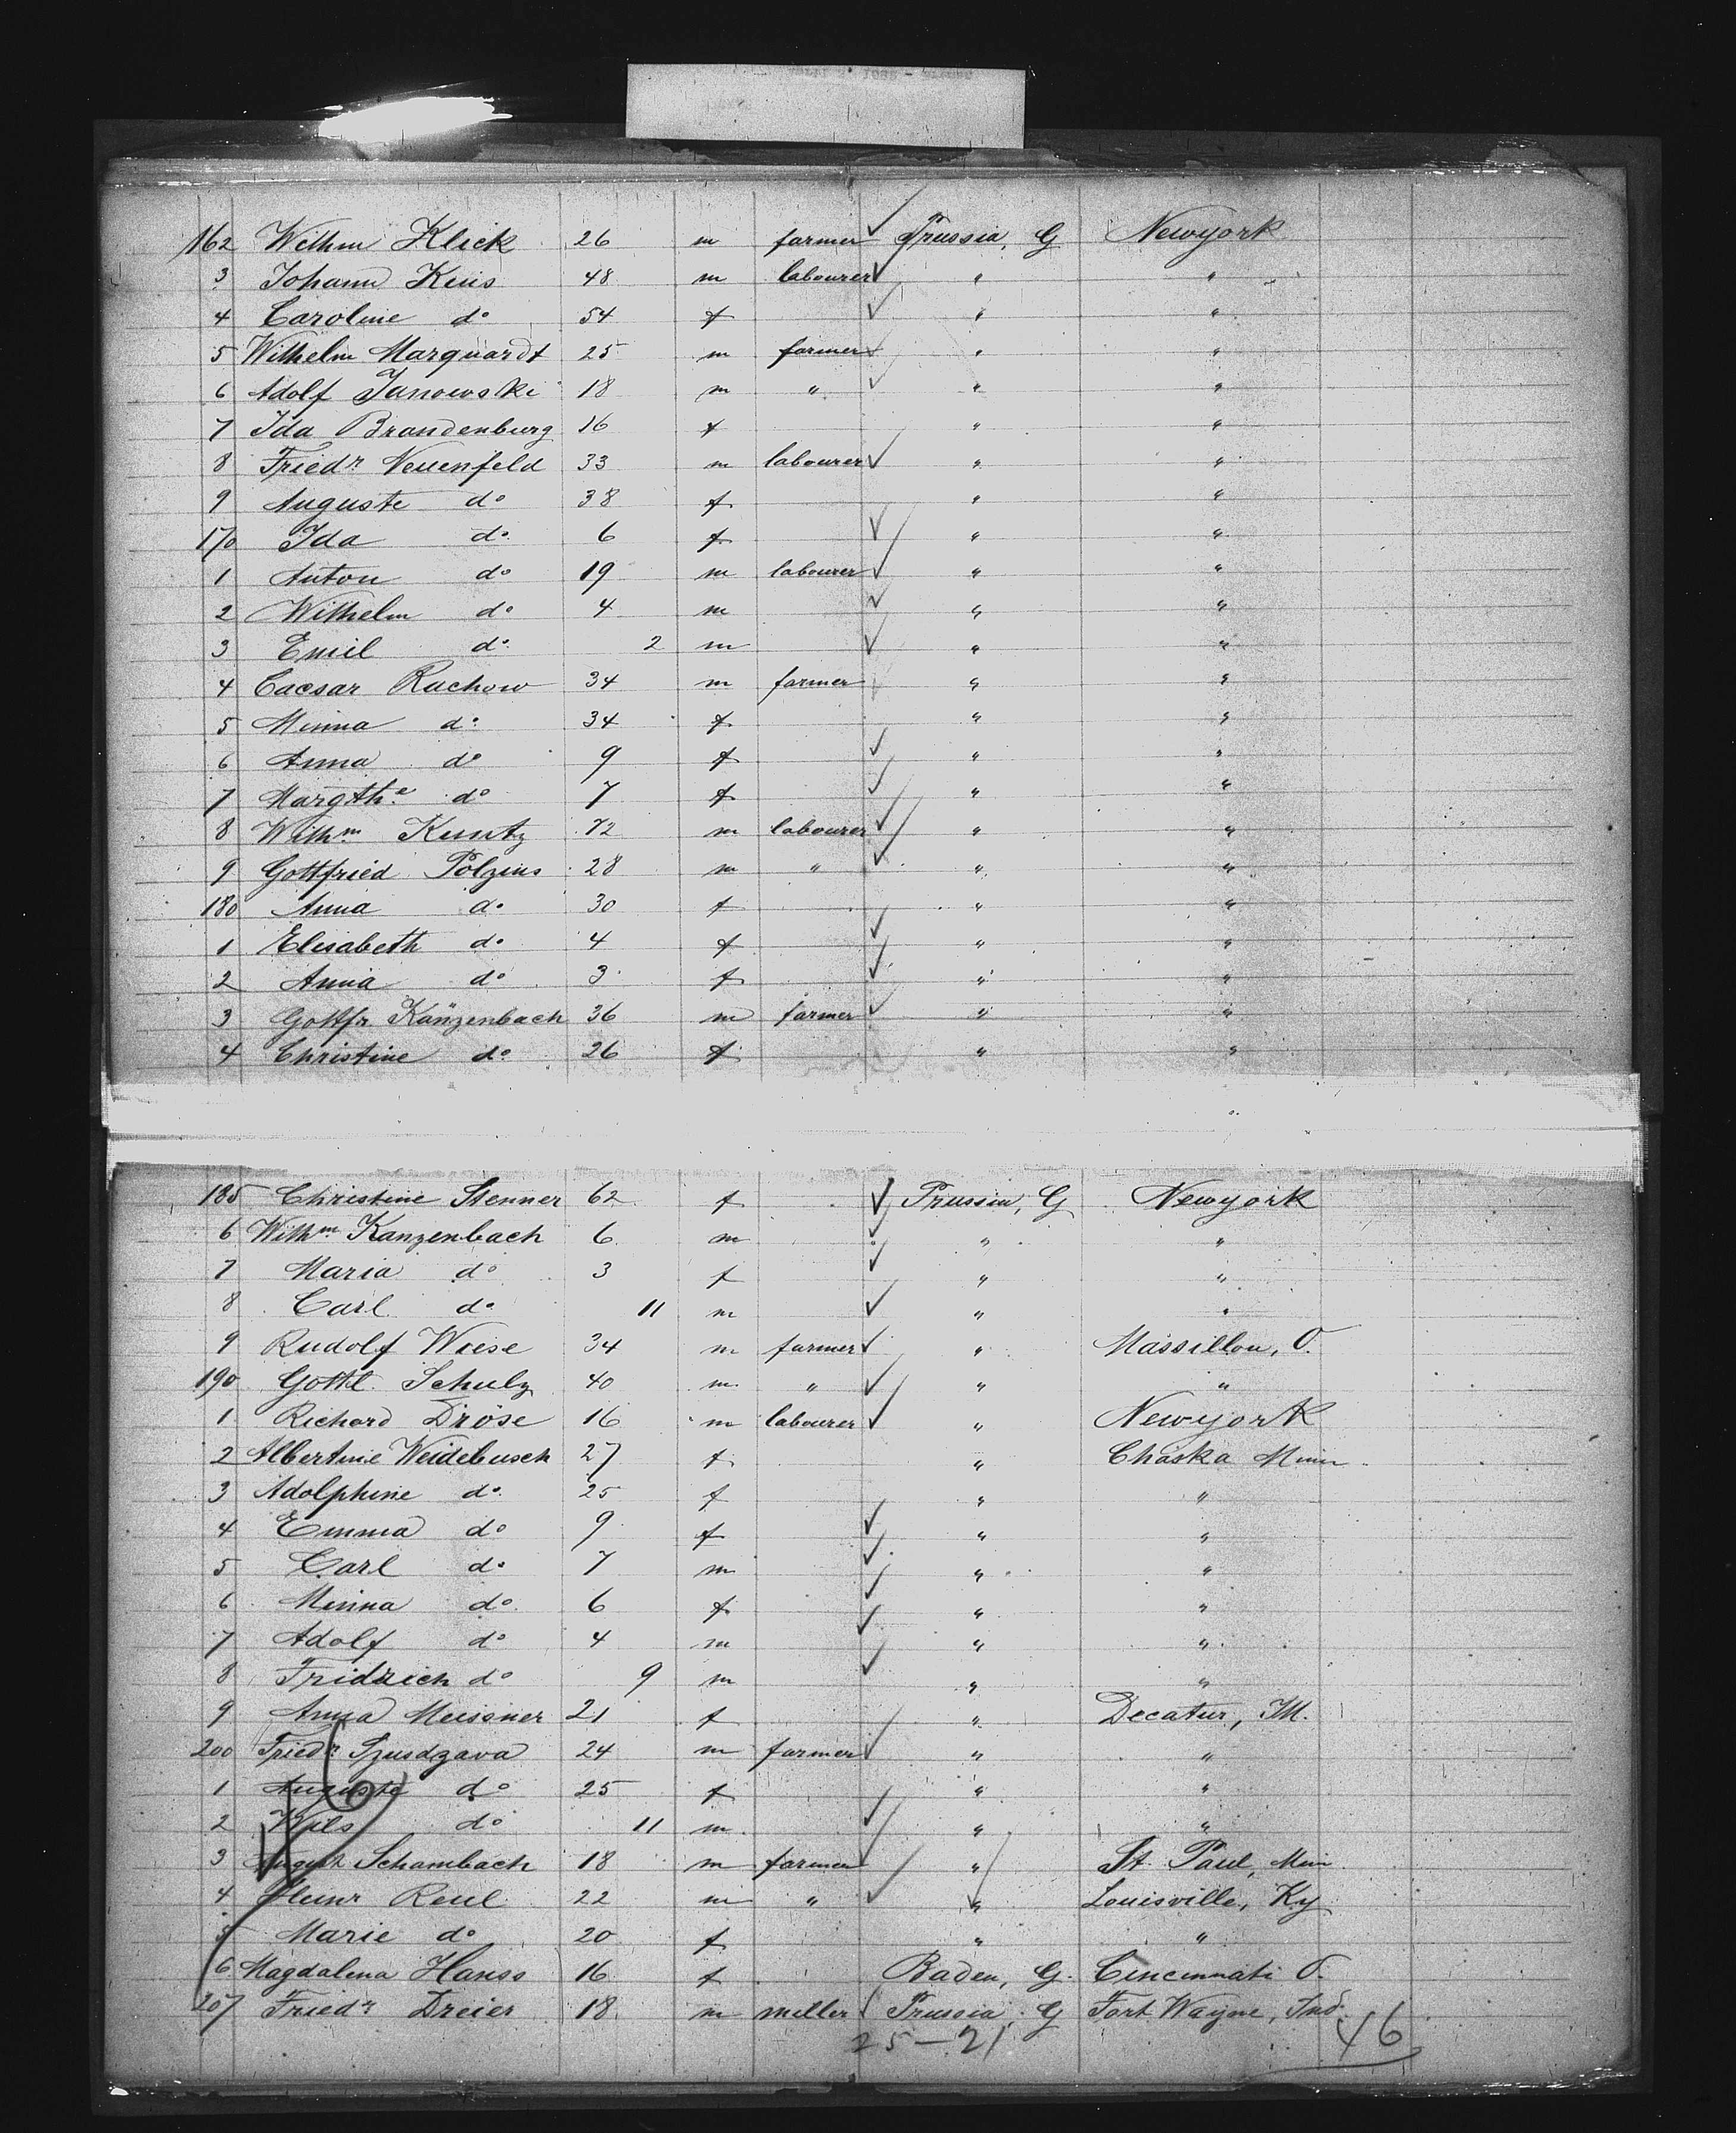 162 Wilhm Klick 26 m farmer Prussia, G Newyork
3 Johann Kuis 48 m labourer " "
4 Caroline do 54 f " "
5 Wilhelm Marquardt 25 m farmer " "
6 Adolf Janowski 18 m " " "
7 Ida Brandenburg 16 f " "
8 Friedr Neuenfeld 33 m labourer " "
9 Auguste do 38 f " "
170 Ida do 6 f " "
1 Anton do 19 m labourer " "
2 Wilhelm do 4 m " "
3 Emil do 2 m " "
4 Caesar Rachow 34 m farmer " "
5 Minna do 34 f " "
6 Anna do 9 f " "
7 Margthe do 7 f " "
8 Wilhm Kuntz 72 m labourer " "
9 Gottfried Polzins 28 m " " "
180 Anna do 30 f " "
1 Elisabeth do 4 f " "
2 Anna do 3 f " "
3 Gottfr Kanzenbach 36 m farmer " "
4 Christine do 26 f " "
185 Christine Stenner 62 f Prussia, G Newyork
6 Wilhm Kanzenbach 6 m " "
7 Maria do 3 f " "
8 Carl do 11 m " "
9 Rudolf Wiese 34 m farmer " Massillon, O.
190 Gottl. Schulz 40 m " " "
1 Richard Dröse 16 m labourer " Newyork
2 Albertine Weidebusch 27 f " Chaska Minn
3 Adolphine do 25 f " "
4 Emma do 9 f " "
5 Carl do 7 m " "
6 Minna do 6 f " "
7 Adolf do 4 m " "
8 Fridrich do 9 m " "
9 Anna Meissner 21 f " Decatur, Ill.
200 Friedr Szusdzava 24 m farmer " "
1 Auguste do 25 f " "
2 Wils do 11 m " "
3 August Schambach 18 m farmer " St. Paul, Min
4 Heinr Reul 22 m " " Louisville, Ky
5 Marie do 20 f " "
6 Magdalena Hanss 16 f Baden, G. Cincinnati O.
207 Friedr Dreier 18 m miller Prussia G Fort Wayne, Ind.
25-21 46